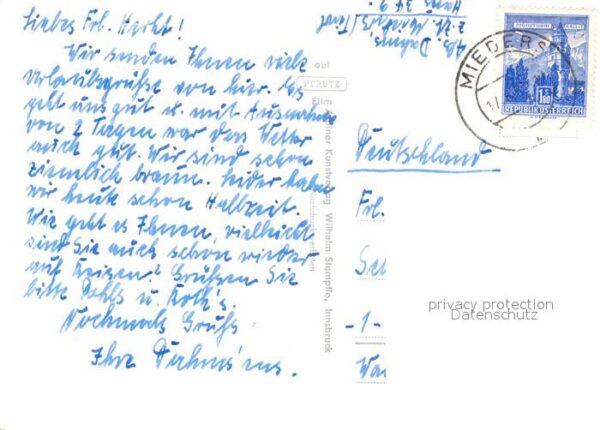 Liebes Frl. Herbst!
Wir senden Ihnen viele
Urlaubsgrüße von hier. Es
geht uns gut u. mit Ausnahme
von 2 Tagen war das Wetter
auch gut. Wir sind schon
ziemlich braun. Leider haben
wir heute schon Halbzeit.
Wie geht es Ihnen, vielleicht
sind Sie auch schon wieder
auf Reisen? Grüßen Sie
bitte Pohls u.
Nochmals Gruß
Ihre Dahms'ens.
auf
PERUTZ
Film
Kunstverlag Wilhelm Stempfle, Innsbruck
Dahms
Haus 349
MIEDERS
1.80
REPUBLIK ÖSTERREICH
Deutschland
Frl.
-1-
privacy protection
Datenschutz